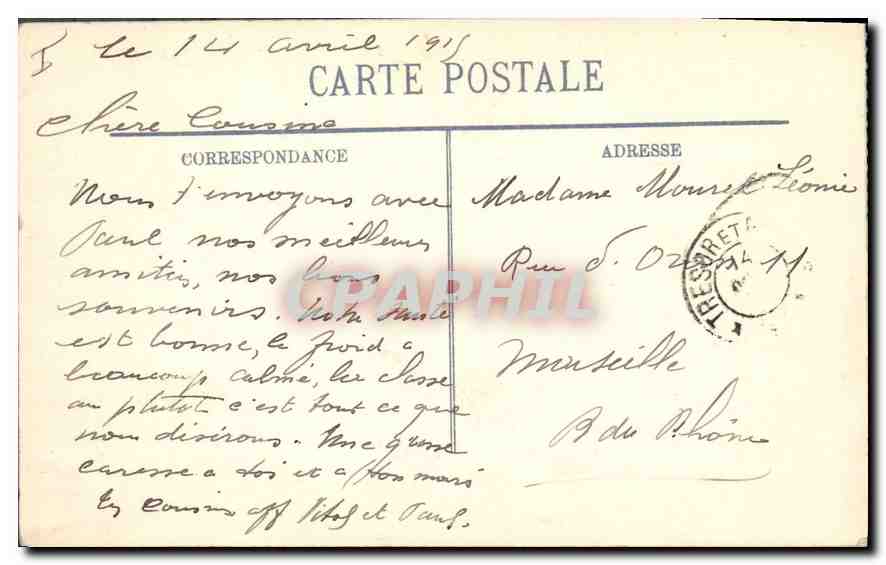 le 14 avril 1915
CARTE POSTALE
Chère Cousine
CORRESPONDANCE
Nous t'envoyons avec
Paul nos meilleurs
amitiés, nos bons
souvenirs. Notre santé
est bonne, le froid a
beaucoup calmé, la classe
au plutot c'est tout ce que
nous désirons. Une grosse
caresse a toi et a ton mari
Tes cousins aff Vital et Paul.
ADRESSE
Madame Mouret Léonie
Rue d. Oran 11
Marseille
B du Rhône
TRESOR ET
14
CPAPHIL